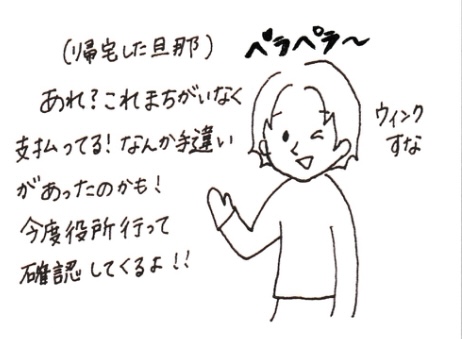 (帰宅した旦那)
ペラペラ〜
あれ?これまちがいなく
支払ってる!なんか手違い
があったのかも!
今度役所行って
確認してくるよ!!
ウィンク
すな